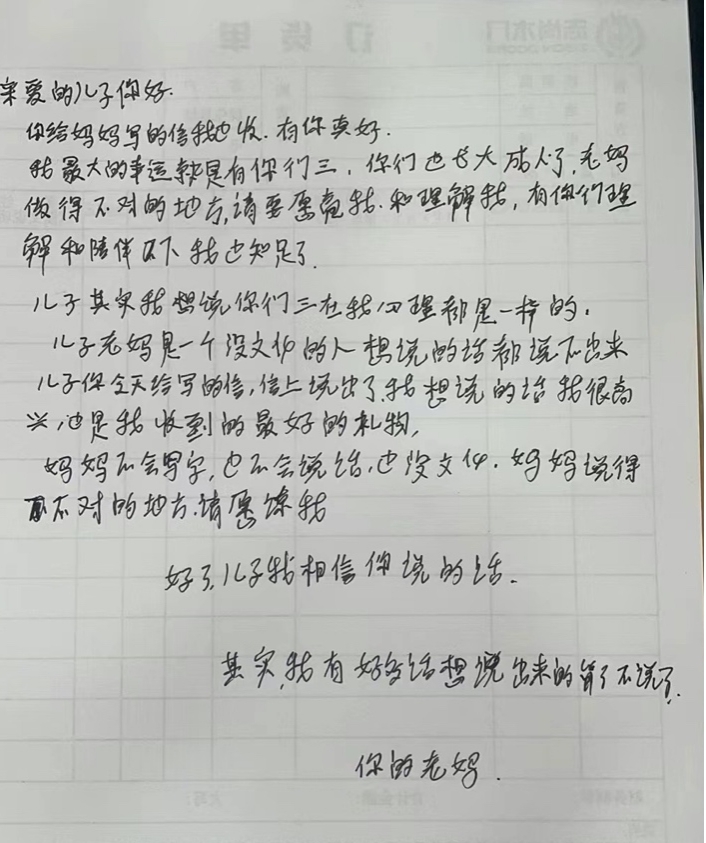 订货单
亲爱的儿子你好.
你给妈妈写的信我也收.有你真好.
我最大的幸运就是有你们三.你们也长大成人了,老妈
做得不对的地方,请要愿亮我.和理解我,有你们理
解和陪伴 我也知足了.
儿子其实我想说你们三在我心理都是一样的.
儿子老妈是一个没文化的人想说的话都说不出来
儿子你今天给写的信,信上说出了,我想说的话我很高
兴,也是我收到的最好的礼物,
妈妈不会写字,也不会说话.也没文化.妈妈说得
不对的地方.请愿谅我
好了,儿子我相信你说的话.
其实,我有好多话想说出来的算了不说了.
你的老妈.